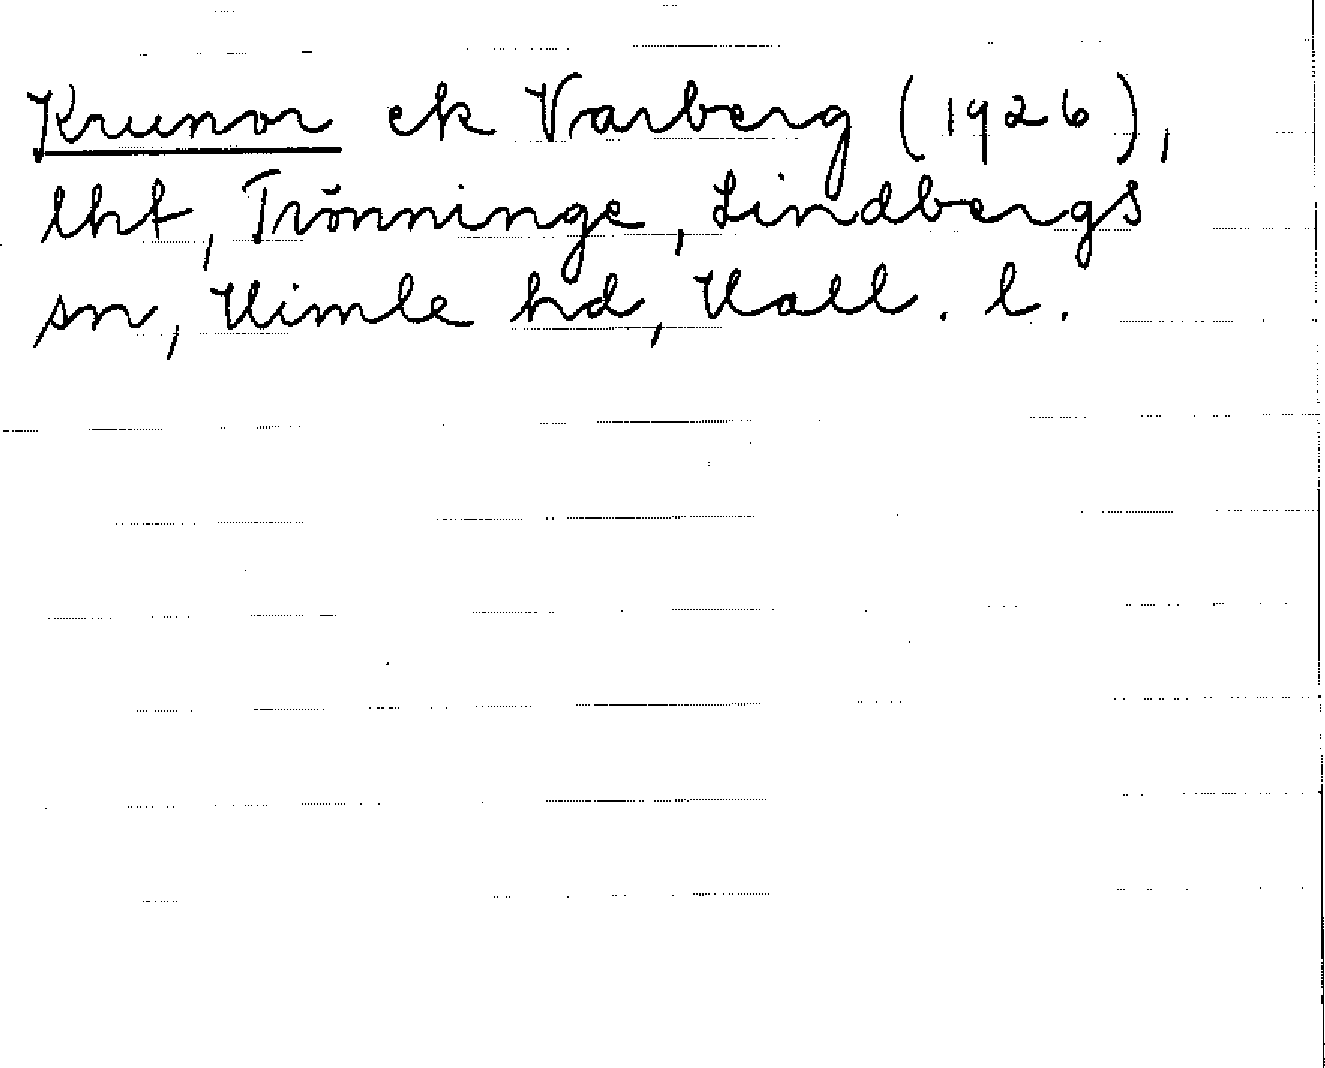 Krunor ek Varberg (1926),
lht, Trönninge, Lindbergs
sn, Himle hd, Hall. l.